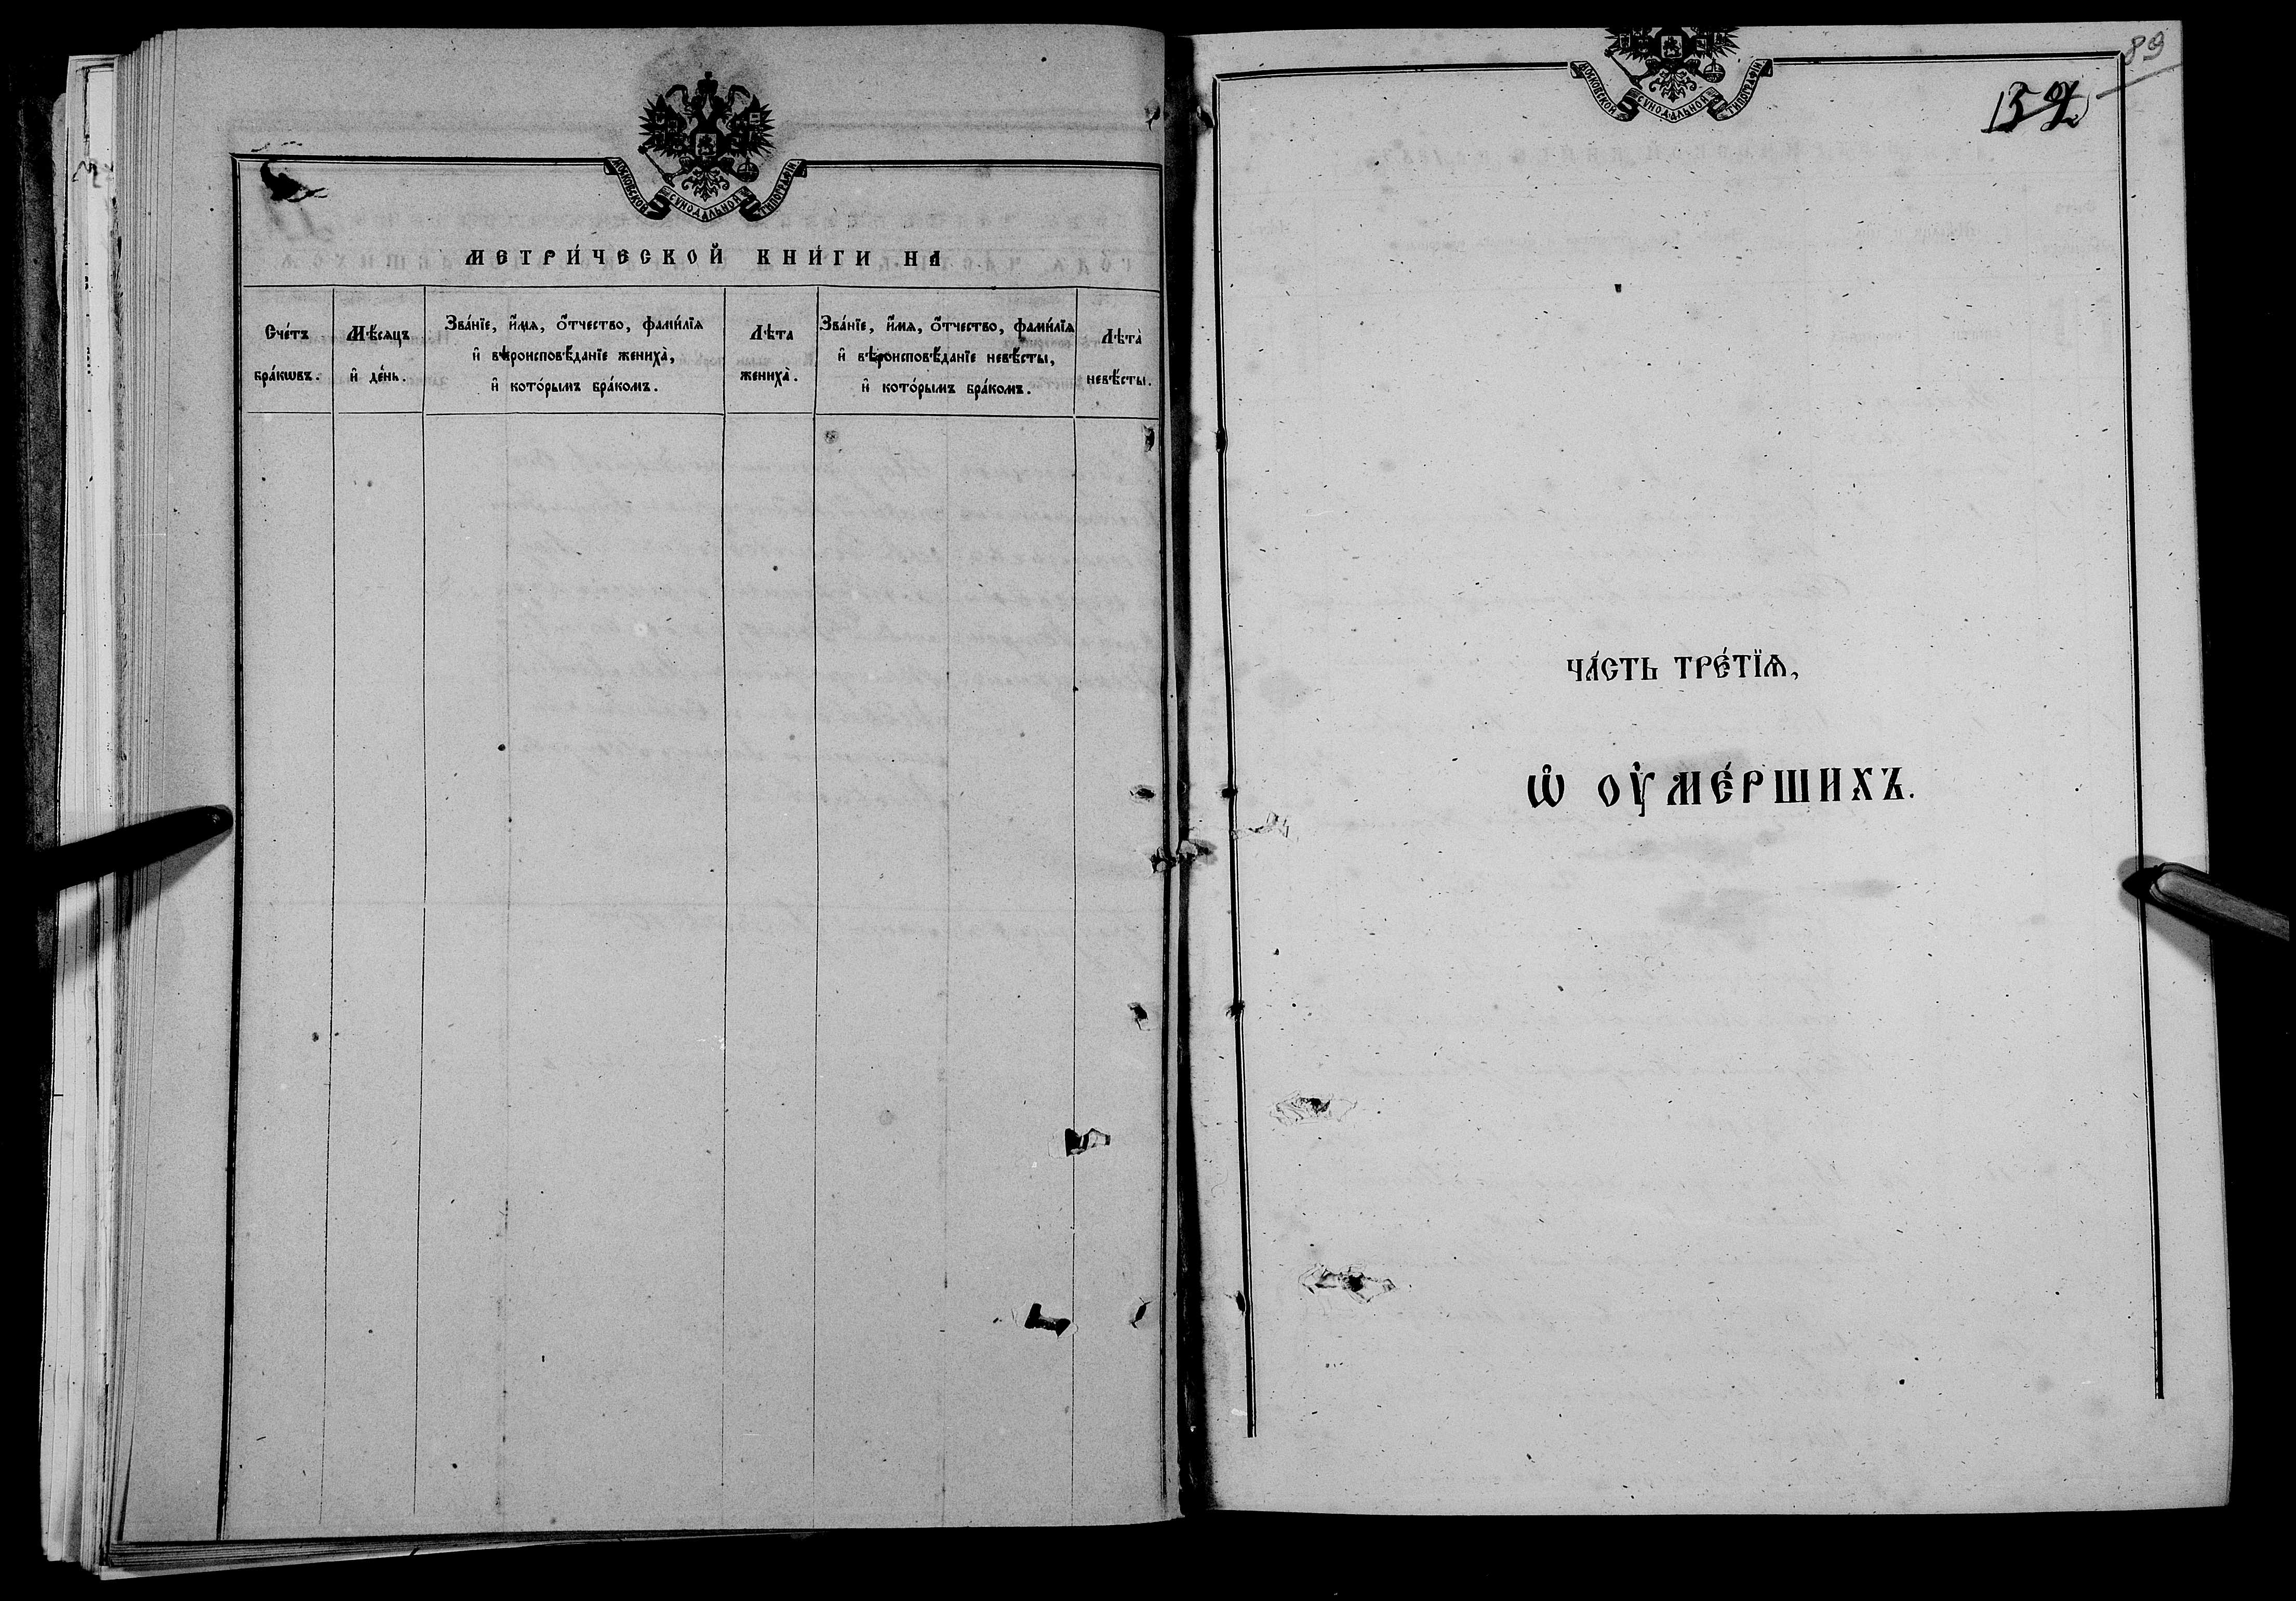 МОСКОВСКОЙ СѴНОДАЛЬНОЙ ТИПОГРАФІИ
МЕТРИ́ЧЕСКОЙ КНИ́ГИ НА
Сче́тъ
бра́кѡвъ.
Мѣ́сяцъ
и҆ де́нь.
Зва́нїе, и҆́мѧ, ѻ҆́тчество, фами́лїѧ
и҆ вѣроисповѣ́данїе жениха̀,
и҆ кото́рымъ бра́комъ.
Лѣта
жениха̀.
Зва́нїе, и҆́мѧ, ѻ҆́тчество, фами́лїѧ
и҆ вѣроисповѣ́данїе невѣ́сты,
и҆ кото́рымъ бра́комъ.
Лѣта̀
невѣ́сты.
МОСКОВСКОЙ СѴНОДАЛЬНОЙ ТИПОГРАФІИ
89
ЧА́СТЬ ТРЕ́ТЇѦ,
Ѡ҆ ОУ҆МЕ́РШИХЪ.